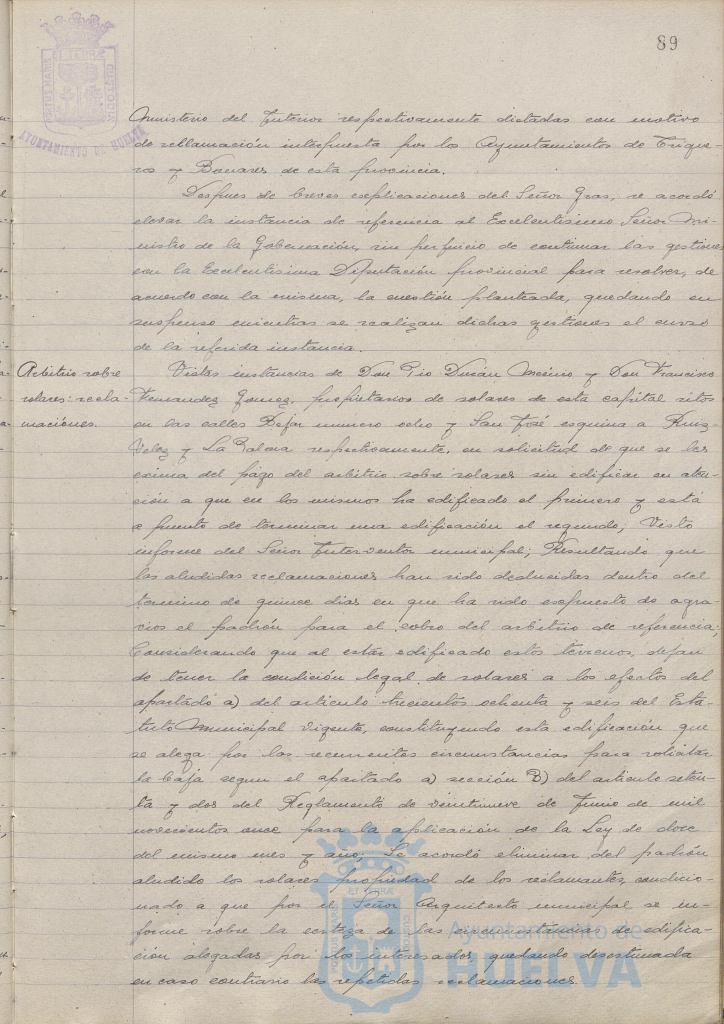 89
PORTUS MARIS
ET TERRÆ
CUSTODIA
AYUNTAMIENTO DE HUELVA
Ministerio del Interior respectivamente dictadas con motivo
de reclamación interpuesta por los Ayuntamientos de Trigue-
ros y Bonares de esta provincia.
Despues de breves explicaciones del Señor Gras, se acordó
elevar la instancia de referencia al Excelentisimo Señor Mi-
nistro de la Gobernación, sin perjuicio de continuar las gestiones
con la Excelentisima Diputación provincial para resolver, de
acuerdo con la misma, la cuestión planteada, quedando en
suspenso mientras se realizan dichas gestiones el curso
de la referida instancia.
Arbitrio sobre
solares: recla-
maciones.
Vistas instancias de Don Pio Durán Merino y Don Francisco
Fernandez Gomez, propietarios de solares de esta capital sitos
en las calles Bejar numero ocho y San José esquina a Ruiz
Velez y La Palma respectivamente, en solicitud de que se les
exima del pago del arbitrio sobre solares sin edificar en aten-
ción a que en los mismos ha edificado el primero y está
a punto de terminar una edificación el segundo; Visto
informe del Señor Interventor municipal; Resultando que
las aludidas reclamaciones han sido deducidas dentro del
termino de quince dias en que ha sido expuesto de agra-
vios el padrón para el cobro del arbitrio de referencia:
Considerando que al estar edificado estos terrenos, dejan
de tener la condición legal de solares a los efectos del
apartado a) del articulo trecientos ochenta y seis del Esta-
tuto Municipal vigente, constituyendo esta edificación que
se alega por los recurrentes circunstancias para solicitar
la baja segun el apartado a) sección B) del articulo seten-
ta y dos del Reglamento de veintinueve de Junio de mil
novecientos once para la aplicación de la Ley de doce
del mismo mes y año; Se acordó eliminar del padrón
aludido los solares propiedad de los reclamantes, condicio-
nado a que por el Señor Arquitecto municipal se in-
forme sobre la certeza de las circunstancias de edifica-
ción alegadas por los interesados, quedando desestimada
en caso contrario las repetidas reclamaciones.
Ayuntamiento de
HUELVA